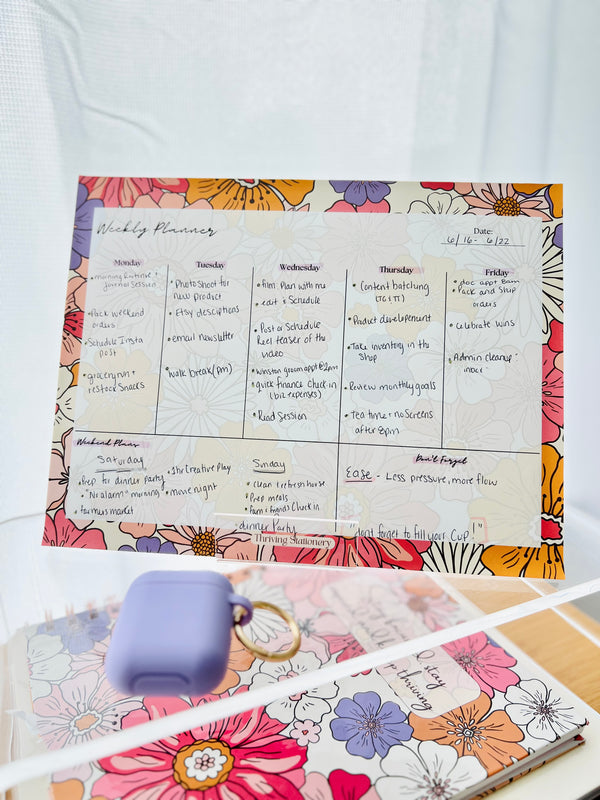 Weekly Planner
Date:
6/16 - 6/22
Monday
• morning Routine +
journal Session
• Pack weekend
orders
• Schedule Insta
post
• grocery run +
restock Snacks
Tuesday
• Photo Shoot for
new product
• Etsy desciptions
• email newsletter
• walk break (pm)
Wednesday
• film: Plan with me
edit & Schedule
• Post or Schedule
Reel teaser of the
video
• Winston groom appt @ 2pm
• quick finance Check in
(biz expenses)
• Read Session
Thursday
• Content batching
(IG + TT)
• Product developement
• Take inventory in the
Shop
• Review monthly goals
• Tea time + no Screens
after 8pm
Friday
• doc appt 8am
• Pack and Ship
orders
• Celebrate wins
• Admin cleanup:
inbox
Weekend Plans
Saturday
• Prep for dinner party
• "No alarm" morning
• farmers market
• 1hr Creative Play
• movie night
Sunday
• clean & refresh horse
• Prep meals
• Fam & friends Check in
• dinner Party
Don't Forget
Ease - Less pressure, more flow
"dont forget to fill your Cup!"
Thriving Stationery
stay
thriving